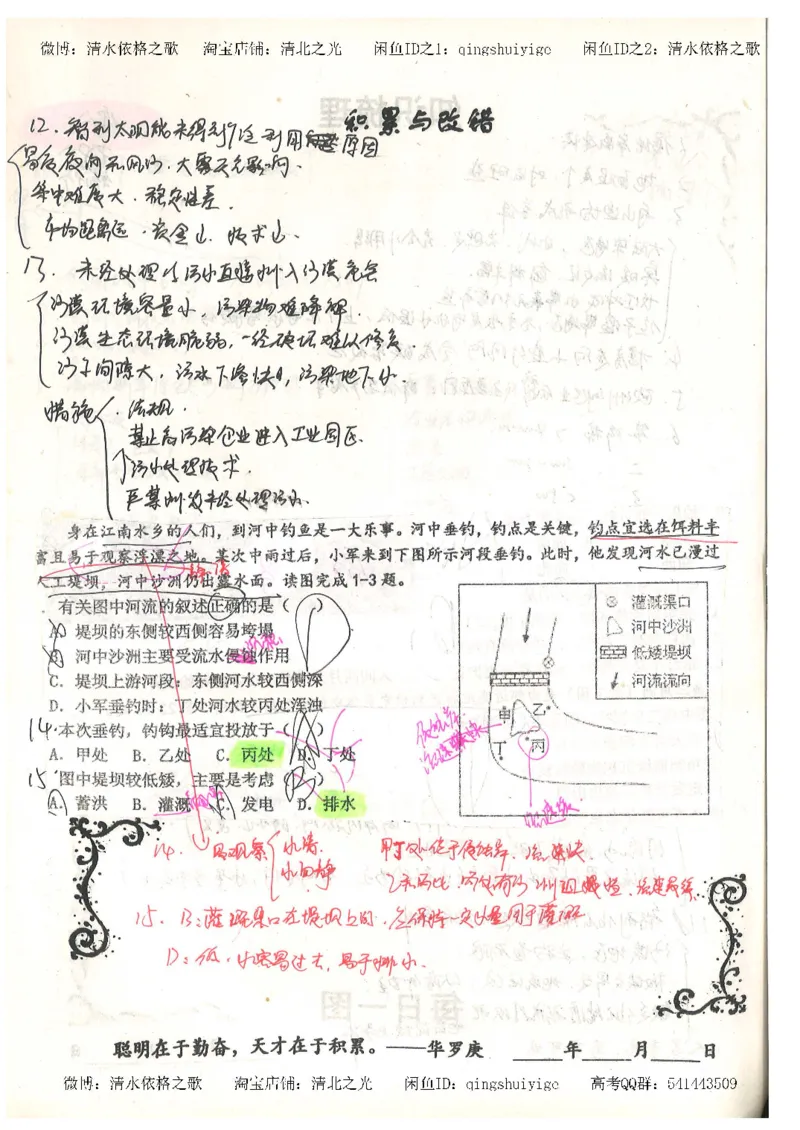 微博：清水依格之歌 淘宝店铺：清北之光 闲鱼ID之1：qingshuiyige 闲鱼ID之2：清水依格之歌
积累与改错
12.智利太阳能未得到广泛利用 原因
昼夜 大 影响.
集中难度大.稳定性差.
市场距离远.资金少.技术少.
13.未经处理的污水直接排入沙漠危害
沙漠环境容量小，污染物难降解.
沙漠生态环境脆弱，一经破坏难以修复.
沙子间隙大，污水下渗快，污染地下水.
措施 .法规.
禁止高污染企业进入工业园区.
↑污水处理技术.
严禁排放未经处理污水.
身在江南水乡的人们，到河中钓鱼是一大乐事。河中垂钓，钓点是关键，钓点宜选在饵料丰
富且易于观察浮漂之地。某次中雨过后，小军来到下图所示河段垂钓。此时，他发现河水已漫过
人工堤坝，河中沙洲仍出露水面。读图完成1-3题。
有关图中河流的叙述正确的是（ ）
A. 堤坝的东侧较西侧容易垮塌
B. 河中沙洲主要受流水侵蚀作用
C. 堤坝上游河段：东侧河水较西侧深
D. 小军垂钓时：丁处河水较丙处浑浊
14.本次垂钓，钓钩最适宜投放于（ ）
A. 甲处 B. 乙处 C. 丙处 D. 丁处
15.图中堤坝较低矮，主要是考虑（ ）
A. 蓄洪 B. 灌溉 C. 发电 D. 排水
灌溉渠口
河中沙洲
低矮堤坝
河流流向
甲 乙
丁 丙
14. 易观察 水清
水面静
甲丁处位于侵蚀岸，流速快.
乙来两比，丙处有沙洲阻挡，流速最缓.
15. B：灌溉渠口在堤坝上的，会保持一定水量用于灌溉
D：低，水容易过去，易于排水.
聪明在于勤奋，天才在于积累。——华罗庚 ____年____月____日
微博：清水依格之歌 淘宝店铺：清北之光 闲鱼ID：qingshuiyige 高考QQ群：541443509